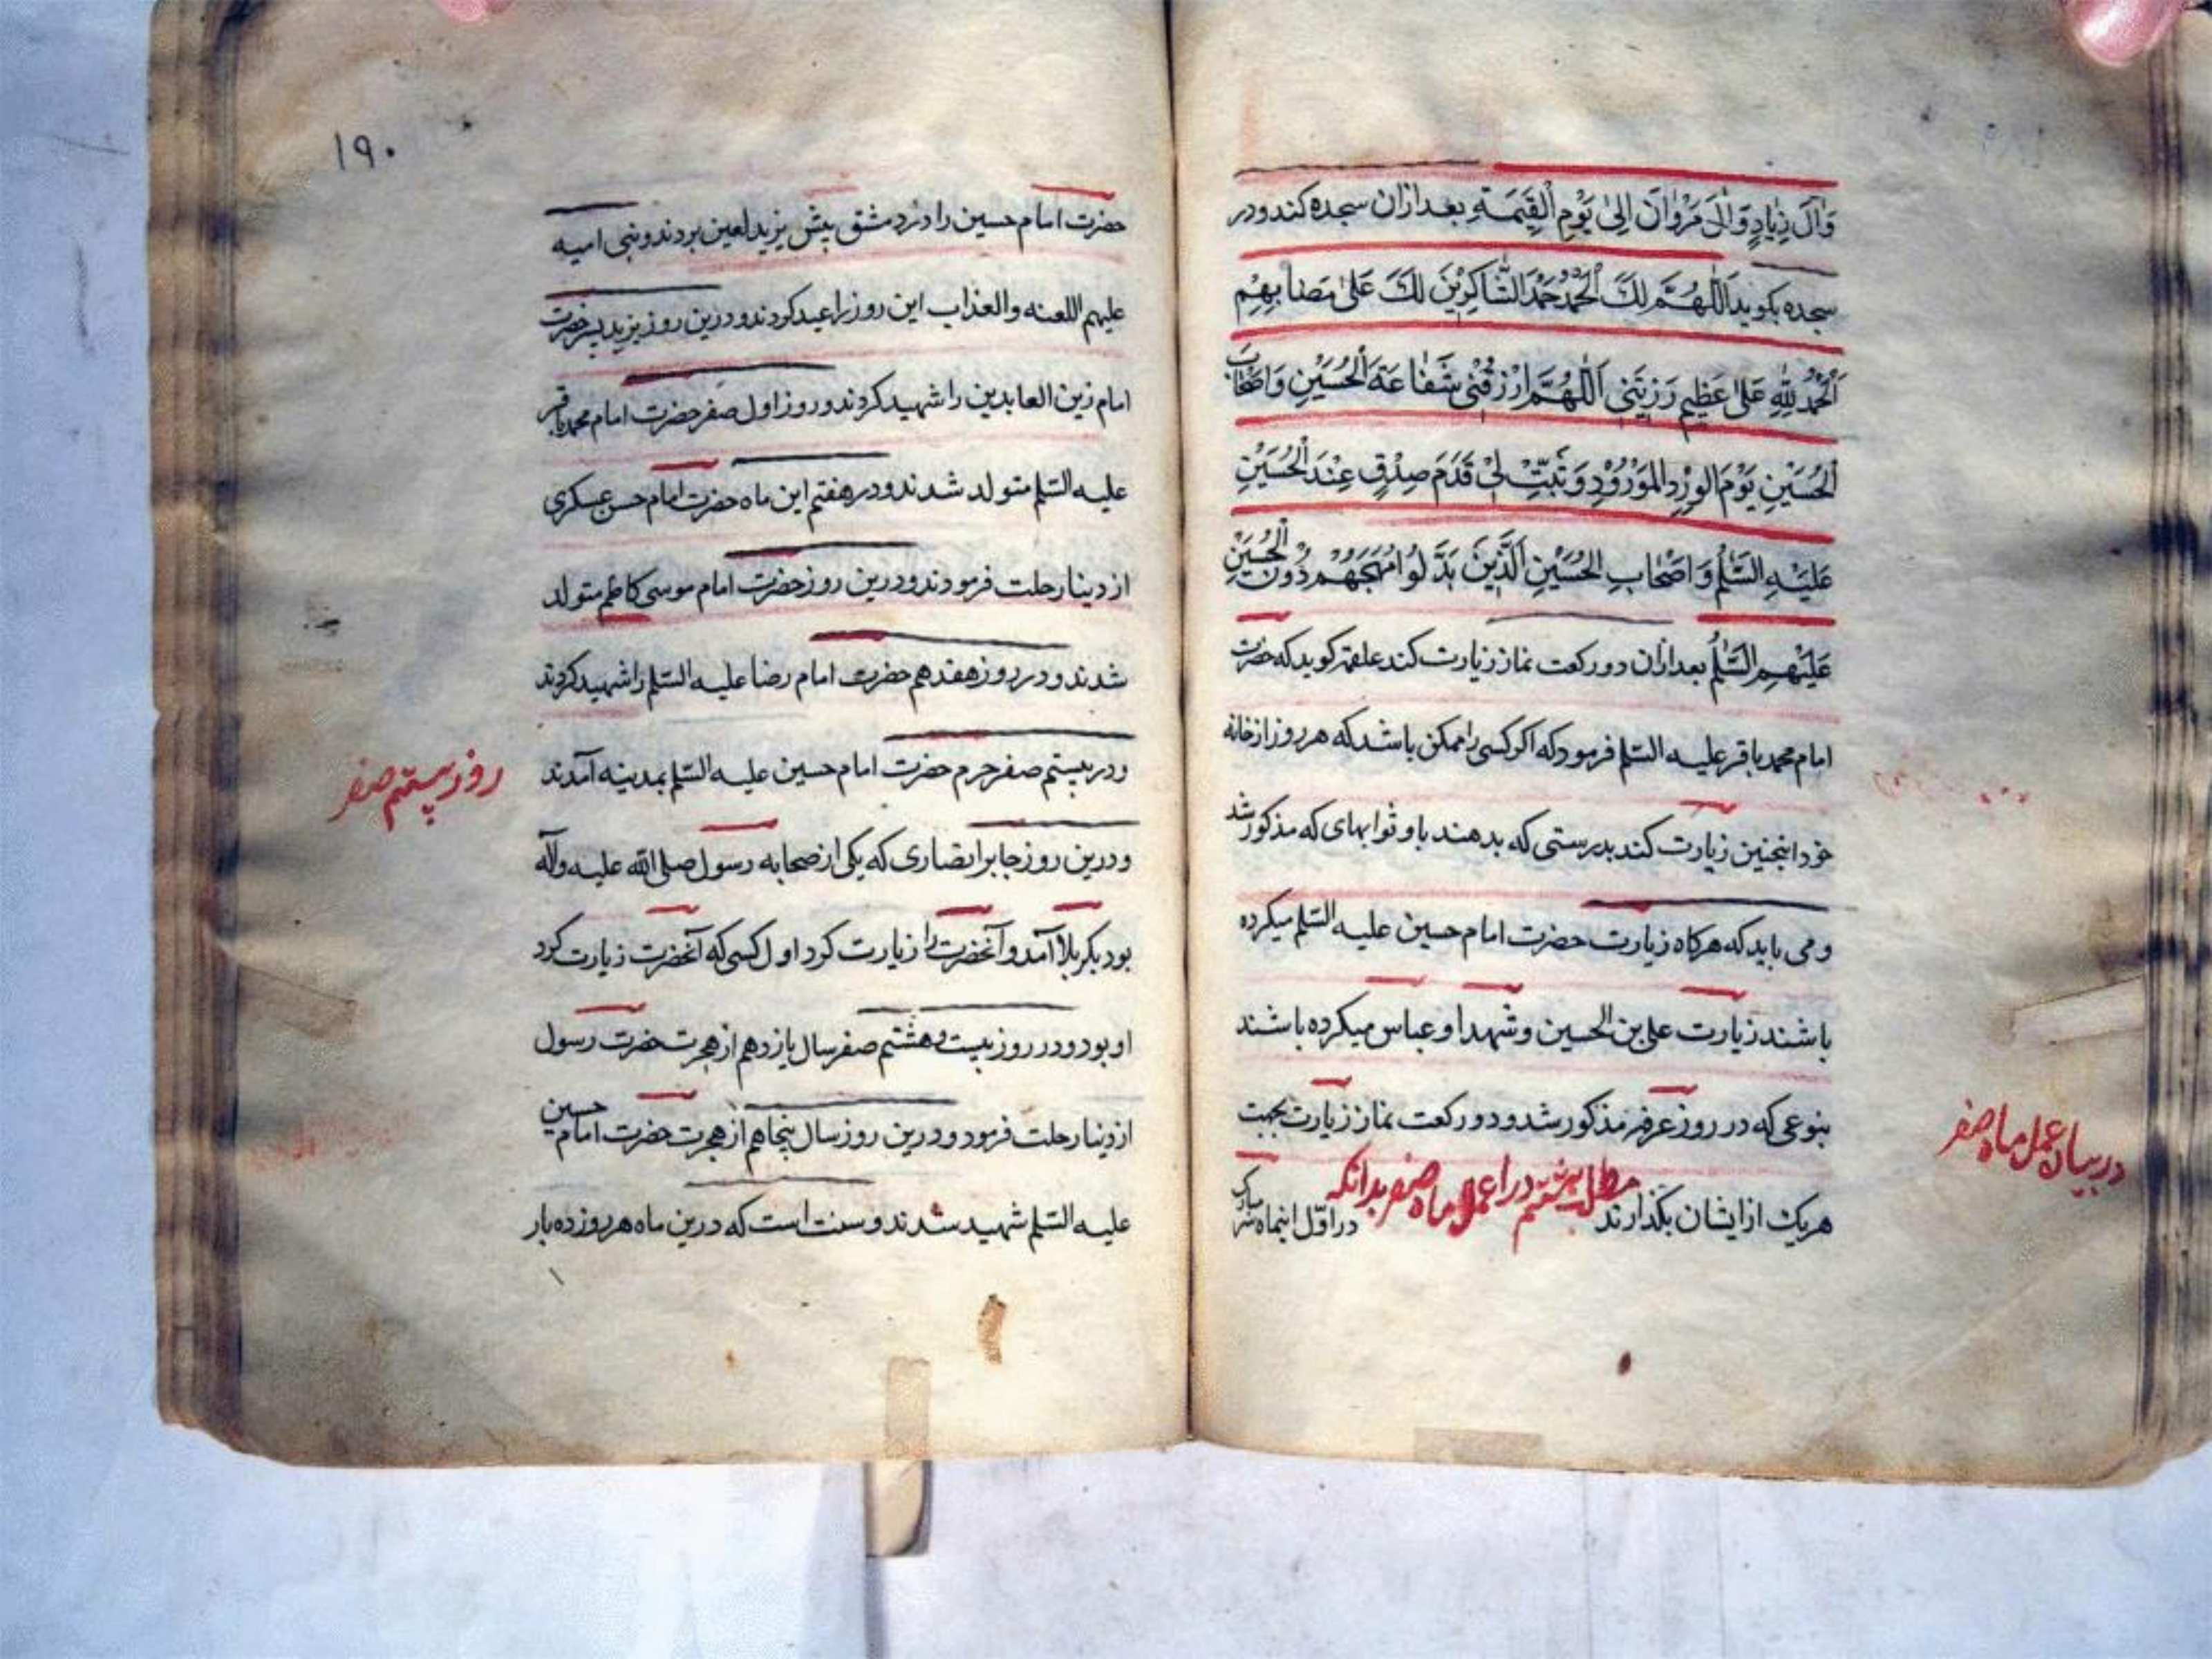 وَآلَ زِيَادٍ وَآلَ مَرْوٰانَ اِلیٰ يَوْمِ الْقِيٰمَةِ بعد ازان سجده کند و در
سجده بکوید اَللّٰهُمَّ لَكَ الْحَمْدُ حَمْدَ الشّٰاكِرِيْنَ لَكَ عَلیٰ مَصٰابِهِمْ
اَلْحَمْدُ لِلّٰهِ عَلیٰ عَظِيمِ رَزِيَّتِي اَللّٰهُمَّ ارْزُقْنِي شَفٰاعَةَ الْحُسَيْنِ وَاَصْحٰابِ
الْحُسَيْنِ يَوْمَ الْوُرُدِ الْمَوْرُوْدِ وَثَبِّتْ لِيْ قَدَمَ صِدْقٍ عِنْدَ الْحُسَيْنِ
عَلَيْهِ السَّلٰمُ وَاَصْحٰابِ الْحُسَيْنِ الَّذِيْنَ بَذَّلُوا مُهَجَهُمْ دُوْنَ الْحُسَيْنِ
عَلَيْهِمِ السَّلٰمُ بعد ازان دو رکعت نماز زیارت کند علقمه کوید که حضرت
امام محمد باقر علیه السلم فرمود که اکر کسی را ممکن باشد که هر روز از خانه
خود اینچنین زیارت کند بدرستی که بدهند باو ثوابهای که مذکور شد
و می باید که هرکاه زیارت حضرت امام حسین علیه السلم میکرده
باشند زیارت علی بن الحسین و شهدا و عباس میکرده باشند
بنوعی که در روز عرفه مذکور شد و دو رکعت نماز زیارت بجهت
هریك از ایشان بکذارند مطلب هشتم در اعمال ماه صفر بدانکه در اوّل اینماه سر مبارك
در بیان عمل ماه صفر
۱۹۰
حضرت امام حسین را در دمشق پیش یزید لعین بردند و بنی امیه
علیهم اللعنه والعذاب این روز را عید کردند و درین روز یزید پسر حضرت
امام زین العابدین را شهید کردند و روز اول صفر حضرت امام محمد باقر
علیه السلم متولد شدند و در هفتم این ماه حضرت امام حسن عسکری
از دینا رحلت فرمودند و درین روز حضرت امام موسی کاظم متولد
شدند و در روز هفدهم حضرت امام رضا علیه السلم را شهید کردند
و در بیستم صفر حرم حضرت امام حسین علیه السلم بمدینه آمدند
روز بیستم صفر
و درین روز جابر انصاری که یکی از صحابه رسول صلی الله علیه وآله
بود بکربلا آمد و آنحضرت را زیارت کرد اول کسی که آنحضرت زیارت کرد
او بود و در روز بیست و هشتم صفر سال یازدهم از هجرت حضرت رسول
از دینا رحلت فرمود و درین روز سال پنجاهم از هجرت حضرت امام حسین
علیه السلم شهید شدند و سنت است که درین ماه هر روز ده بار